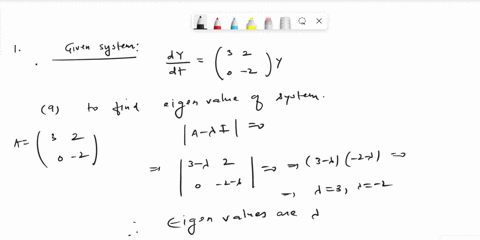 1. Given system:
dY/dt = (3 2
0 -2) Y
(a) to find eigen value of system.
A = (3 2
0 -2)
|A-λI| =0
⇒ |3-λ 2
0 -2-λ| =0 ⇒ (3-λ)(-2-λ) =0
⇒, λ=3, λ=-2
∴ Eigen values are λ